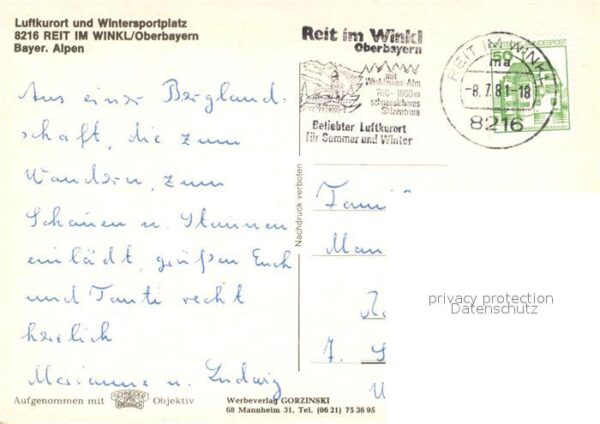 Luftkurort und Wintersportplatz
8216 REIT IM WINKL/Oberbayern
Bayer. Alpen
Reit im Winkl
Oberbayern
mit
Winklmoos-Alm
700-1800m
schneesicheres
Skizentrum
Beliebter Luftkurort
für Sommer und Winter
REIT IM WINKL
ma
-8.7.81-18
8216
50
DEUTSCHE BUNDESPOST
Aus einer Bergland-
schaft, die zum
Wandern, zum
Schauen u. Staunen
einlädt, grüßen Euch
und Tanti recht
herzlich
Marianne u. Ludwig
Nachdruck verboten
Fami
Man
7. S
privacy protection
Datenschutz
Aufgenommen mit
SCHNEIDER
KREUZNACH
Objektiv
Werbeverlag GORZINSKI
68 Mannheim 31, Tel. (06 21) 75 36 95